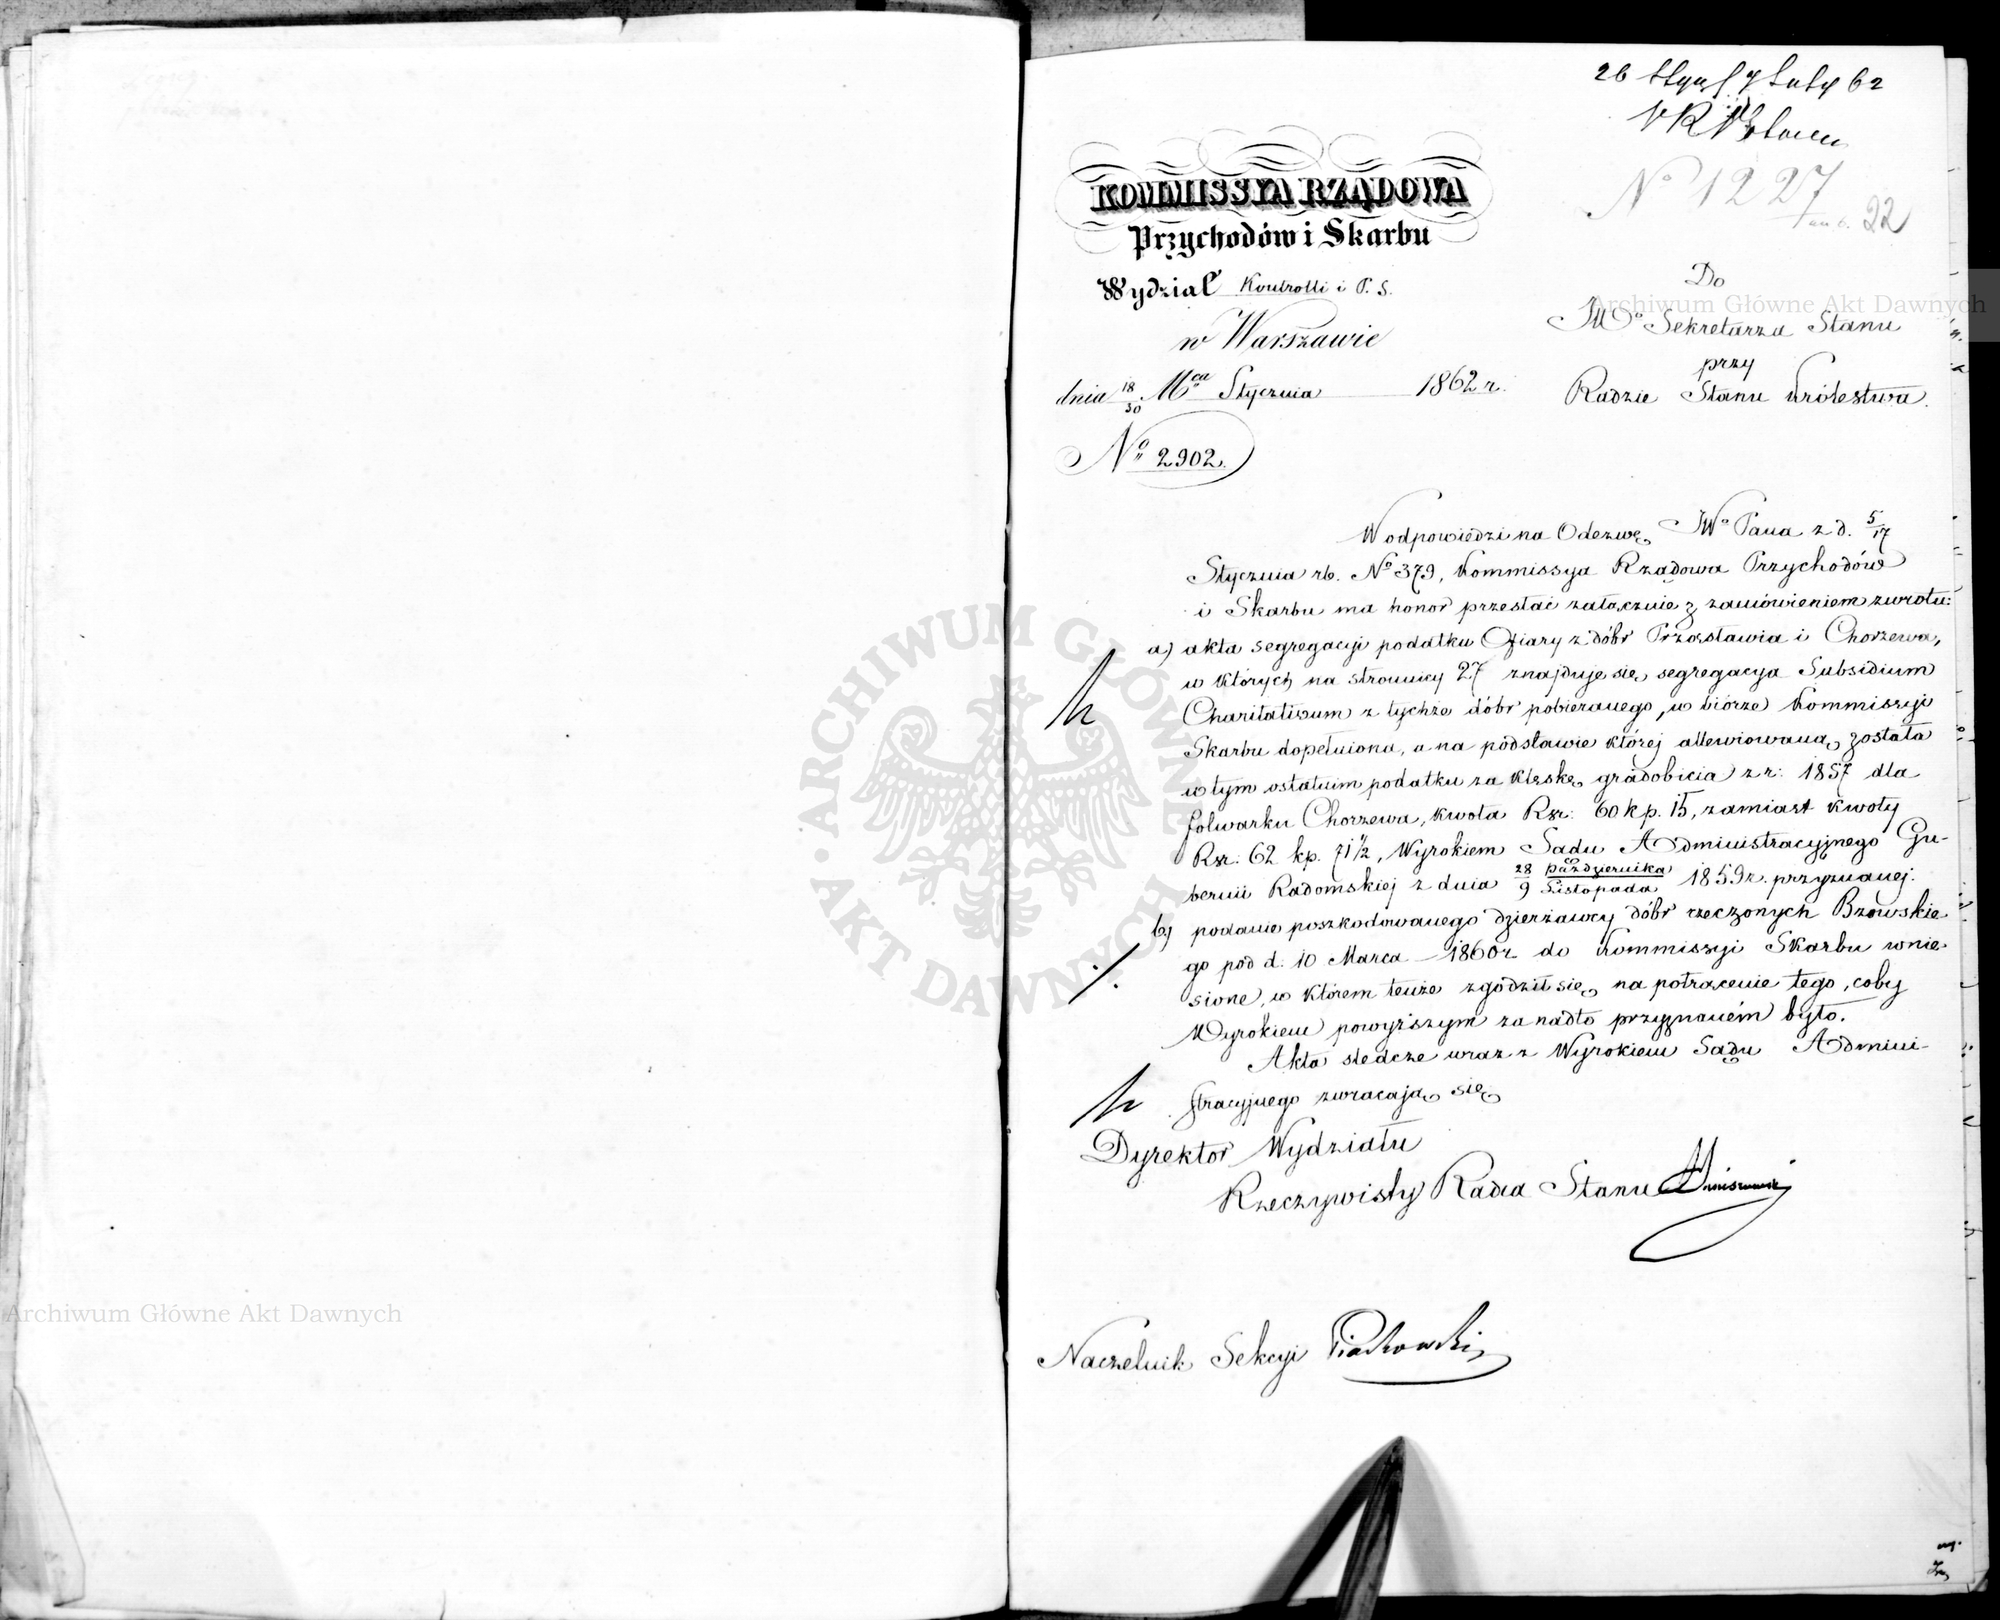 26 Stycz/7 Luty 62
No 1227
22
KOMMISSYA RZĄDOWA
Przychodów i Skarbu
Wydział Kontrolli i P. S.
w Warszawie
dnia 18/30 Mca Stycznia 1862 r.
No 2902.
Do
JWo Sekretarza Stanu
przy
Radzie Stanu Królestwa.
W odpowiedzi na Odezwę JWo Pana z d. 5/17
Stycznia rb. No 379, Kommissya Rządowa Przychodów
i Skarbu ma honor przesłać załącznie z zamówieniem zwrotu:
a) akta segregacyi podatku Ofiary z dóbr Przosławia i Chorzewa,
w których na stronnicy 27 znajduje się segregacya Subsidium
Charitativum z tychże dóbr pobieranego, w biórze Kommissyi
Skarbu dopełniona, a na podstawie której allewiowaną została
w tym ostatnim podatku za klęskę gradobicia z r: 1857 dla
folwarku Chorzewa, kwota Rsr: 60 kp. 15, zamiast kwoty
Rsr: 62 kp. 71½, Wyrokiem Sądu Administracyjnego Gu-
bernii Radomskiej z dnia 28 Października/9 Listopada 1859 r. przyznanej.
b) podanie poszkodowanego dzierżawcy dóbr rzeczonych Bzowskie
go pod d. 10 Marca 1860 r do Kommissyi Skarbu wnie-
sione, w którem tenże zgodził się na potrącenie tego, coby
Wyrokiem powyższym za nadto przyznaném było.
Akta śledcze wraz z Wyrokiem Sądu Admini-
stracyjnego zwracają się
Dyrektor Wydziału
Rzeczywisty Radca Stanu
Naczelnik Sekcyi Piotrowski
Archiwum Główne Akt Dawnych
Archiwum Główne Akt Dawnych
ARCHIWUM GŁÓWNE AKT DAWNYCH